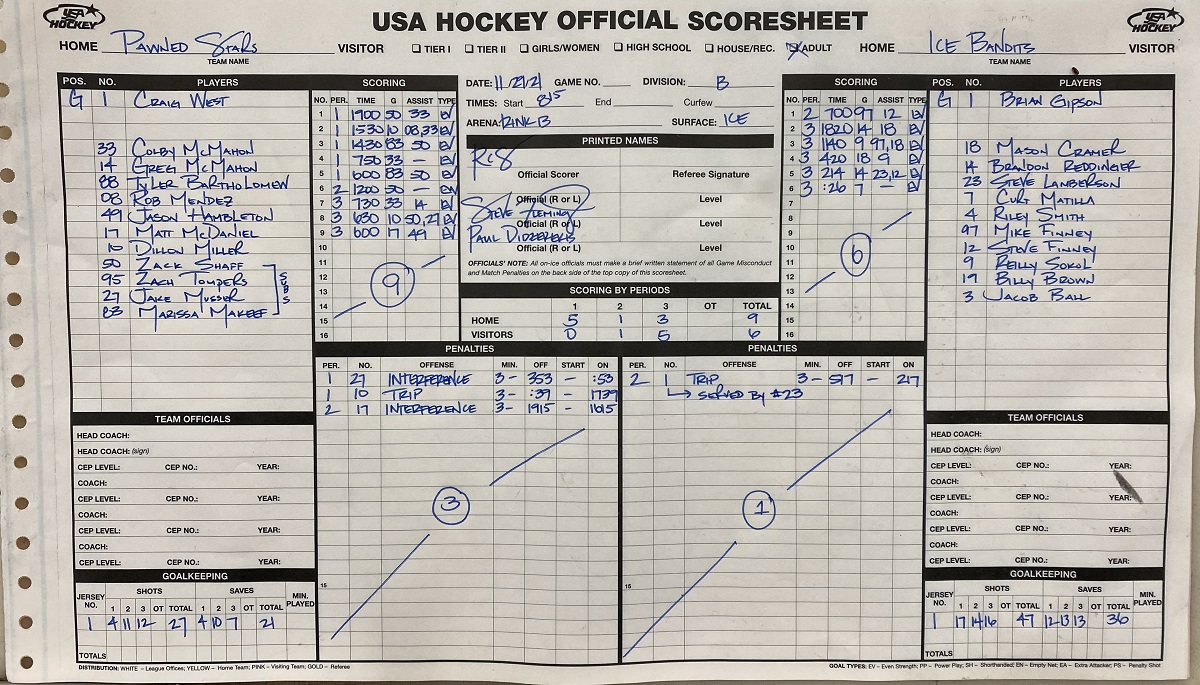 USA HOCKEY
USA HOCKEY OFFICIAL SCORESHEET
USA HOCKEY
HOME Pawned Stars VISITOR
TEAM NAME
☐ TIER I ☐ TIER II ☐ GIRLS/WOMEN ☐ HIGH SCHOOL ☐ HOUSE/REC. ☒ ADULT
HOME Ice Bandits VISITOR
TEAM NAME
POS. NO. PLAYERS
G 1 Craig West
33 Colby McMahon
14 Greg McMahon
88 Tyler Bartholomew
08 Rob Mendez
49 Jason Hambleton
17 Matt McDaniel
10 Dillon Miller
50 Zack Shaff
95 Zach Tompers
27 Jake Musser
83 Marissa Makeef
SUBS
SCORING
NO. PER. TIME G ASSIST TYPE
1 1 1900 50 33 EV
2 1 1530 10 08,33 EV
3 1 1430 83 50 EV
4 1 750 33 – EV
5 1 600 83 50 EV
6 2 1200 50 – EV
7 3 730 33 14 EV
8 3 630 10 50,27 EV
9 3 600 17 49 EV
10
11
12
13
14
15
16
9
DATE: 11/29/21 GAME NO. DIVISION: B
TIMES: Start 815 End Curfew
ARENA: Rink B SURFACE: Ice
PRINTED NAMES
Official Scorer Referee Signature
Steve Fleming
Official (R or L) Level
Official (R or L) Level
Paul
Official (R or L) Level
OFFICIALS' NOTE: All on-ice officials must make a brief written statement of all Game Misconduct
and Match Penalties on the back side of the top copy of this scoresheet.
SCORING BY PERIODS
1 2 3 OT TOTAL
HOME 5 1 3 9
VISITORS 0 1 5 6
SCORING
NO. PER. TIME G ASSIST TYPE
1 2 700 97 12 EV
2 3 1820 14 18 EV
3 3 1140 9 97,18 EV
4 3 420 18 9 EV
5 3 214 14 23,12 EV
6 3 :26 7 – EV
7
8
9
10
11
12
13
14
15
16
6
POS. NO. PLAYERS
G 1 Brian Gipson
18 Mason Cramer
14 Brandon Reddinger
23 Steve Lamberson
7 Curt Matilla
4 Riley Smith
97 Mike Finney
12 Steve Finney
9 Reilly Sokol
19 Billy Brown
3 Jacob Ball
PENALTIES
PER. NO. OFFENSE MIN. OFF START ON
1 27 Interference 3- 353 – :53
1 10 Trip 3- :39 – 1739
2 17 Interference 3- 1915 – 1615
3
15
PENALTIES
PER. NO. OFFENSE MIN. OFF START ON
2 1 Trip 3- 517 – 217
↳ Served by #23
1
15
TEAM OFFICIALS
HEAD COACH:
HEAD COACH: (sign)
CEP LEVEL: CEP NO.: YEAR:
COACH:
CEP LEVEL: CEP NO.: YEAR:
COACH:
CEP LEVEL: CEP NO.: YEAR:
COACH:
CEP LEVEL: CEP NO.: YEAR:
GOALKEEPING
JERSEY NO. SHOTS SAVES MIN. PLAYED
1 2 3 OT TOTAL 1 2 3 OT TOTAL
1 4 11 12 27 4 10 7 21
TOTALS
TEAM OFFICIALS
HEAD COACH:
HEAD COACH: (sign)
CEP LEVEL: CEP NO.: YEAR:
COACH:
CEP LEVEL: CEP NO.: YEAR:
COACH:
CEP LEVEL: CEP NO.: YEAR:
COACH:
CEP LEVEL: CEP NO.: YEAR:
GOALKEEPING
JERSEY NO. SHOTS SAVES MIN. PLAYED
1 2 3 OT TOTAL 1 2 3 OT TOTAL
1 17 14 16 47 12 13 13 36
TOTALS
DISTRIBUTION: WHITE – League Offices; YELLOW – Home Team; PINK – Visiting Team; GOLD – Referee
GOAL TYPES: EV – Even Strength; PP – Power Play; SH – Shorthanded; EN – Empty Net; EA – Extra Attacker; PS – Penalty Shot